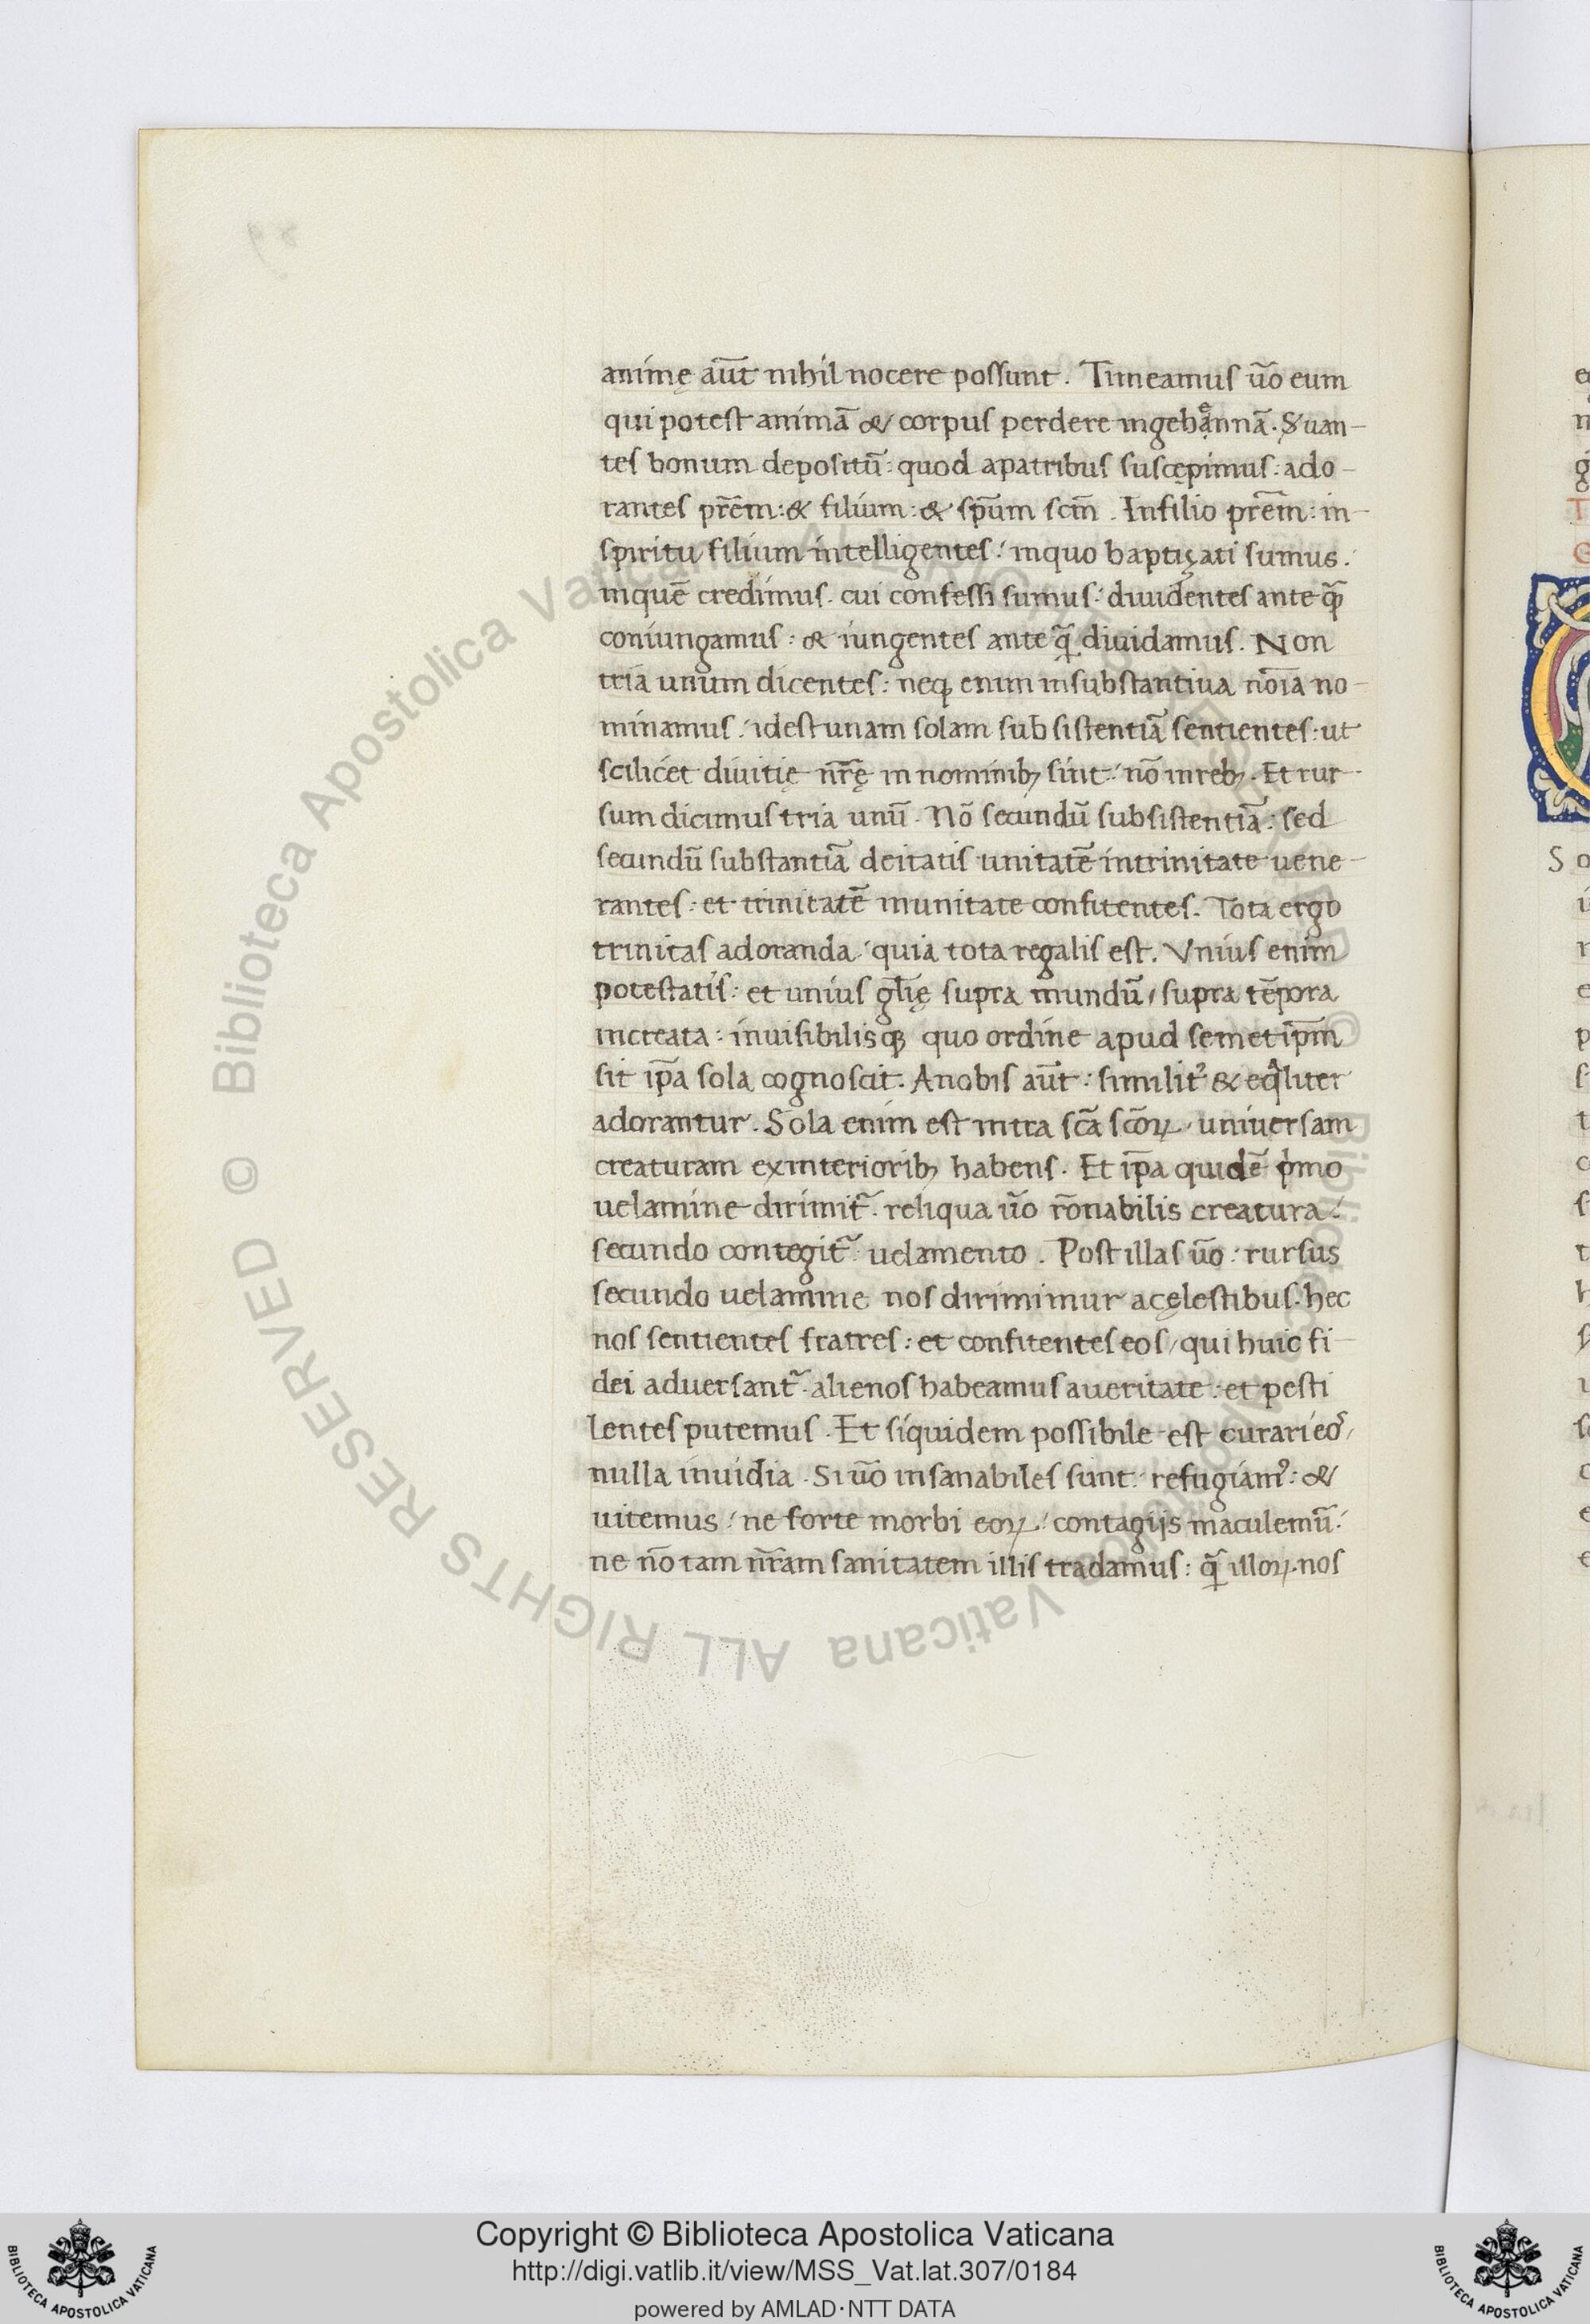 animę aūt nihil nocere possunt. Timeamus ūo eum
qui potest animā & corpus perdere ingehennā. Suan-
tes bonum depositū: quod apatribus suscępimus: ado-
rantes prēm: & filium: & spm̄ scm̄. Infilio prēm: in-
spiritu filium intelligentes: inquo baptiçati sumus.
inquē credimus. cui confessi sumus: diuidentes ante q̄ꝫ
coniungamus: & iungentes ante q̄ꝫ diuidamus. Non
tria unum dicentes: neqꝫ enim insubstantiua noīa no-
minamus: idest unam solam subsistentiā sentientes: ut
scilicet diuitię nr̄ę in nominibꝫ sint: nō inrebꝫ. Et rur-
sum dicimus tria unū. Nō secundū subsistentiā: sed
secundū substantiā deitatis unitatē intrinitate uene-
rantes: et trinitatē inunitate confitentes. Tota ergo
trinitas adoranda: quia tota regalis est. Vnius enim
potestatis: et unius gl̄ię supra mundū, supra tēpora
increata: inuisibilisqꝫ quo ordine apud semetip̄m
sit ip̄a sola cognoscit. Anobis aūt: similit᷒ & eq̄liter
adorantur. Sola enim est intra scā scōꝝ, uniuersam
creaturam exinterioribꝫ habens. Et ip̄a quidē pͥmo
uelamine dirimit᷑. reliqua ūo rōnabilis creatura:
secundo contegit᷑ uelamento. Post illas ūo: rursus
secundo uelamine nos dirimimur acęlestibus. hec
nos sentientes fratres: et confitentes eos, qui huic fi-
dei aduersant᷑. alienos habeamus aueritate: et pesti
lentes putemus. Et siquidem possibile est curari eos,
nulla inuidia. Si ūo insanabiles sunt: refugiamꝰ: &
uitemus: ne forte morbi eoꝝ: contagijs maculemū:
ne nō tam nr̄am sanitatem illis tradamus: q̄ꝫ illoꝝ. nos
Copyright © Biblioteca Apostolica Vaticana
http://digi.vatlib.it/view/MSS_Vat.lat.307/0184
powered by AMLAD·NTT DATA
BIBLIOTECA APOSTOLICA VATICANA
BIBLIOTECA APOSTOLICA VATICANA
© Biblioteca Apostolica Vaticana ALL RIGHTS RESERVED
© Biblioteca Apostolica Vaticana ALL RIGHTS RESERVED